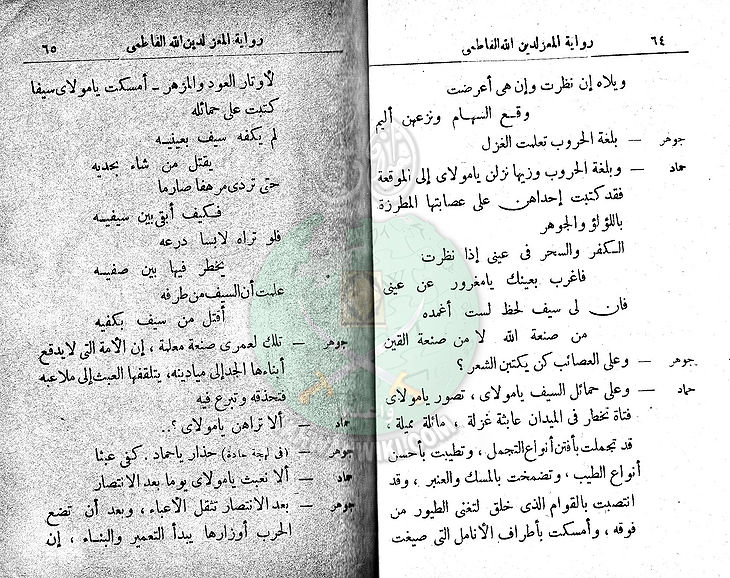 ٦٤ رواية المعز لدين الله الفاطمى
ويلاه إن نظرت وإن هى أعرضت
وقع السهام ونزعهن أليم
جوهر — بلغة الحروب تعلمت الغزل
حماد — وبلغة الحروب وزيها نزلن يامولاى إلى الموقعة
فقد كتبت إحداهن على عصابتها المطرزة
باللؤلؤ والجوهر
الكفر والسحر فى عينى إذا نظرت
فاغرب بعينك يامغرور عن عينى
فان لى سيف لحظ لست أغمده
من صنعة الله لا من صنعة القين
جوهر — وعلى العصائب كن يكتبن الشعر ؟
حماد — وعلى حمائل السيف يامولاى ، تصور يامولاى
فتاة تخطر فى الميدان عابثة غزلة ، مائلة مميلة ،
قد تجملت بأفتن أنواع التجمل ، وتطيبت بأحسن
أنواع الطيب ، وتضمخت بالمسك والعنبر ، وقد
انتصبت بالقوام الذى خلق لتغنى الطيور من
فوقه ، وأمسكت بأطراف الأنامل التى صيغت
رواية المعز لدين الله الفاطمى ٦٥
لأوتار العود والمزهر – أمسكت يامولاى سيفا
كتبت على حمائله
لم يكفه سيف بعينيه
يقتل من شاء بحديه
حتى تردى مرهفا صارما
فكيف أبقى بين سيفيه
فلو تراه لابسا درعه
يخطر فيها بين صفيه
علمت أن السيف من طرفه
أقتل من سيف بكفيه
جوهر — تلك لعمرى صنعة معلمة ، إن الأمة التى لا يدفع
أبناءها الجد إلى ميادينه ، يتلقفها العبث إلى ملاعبه
فتحذقه وتبرع فيه
حماد — ألا تراهن يامولاى ؟..
جوهر — (فى لهجة حادة) حذار ياحماد . كفى عبثا
حماد — ألا نعبث يامولاى يوما بعد الانتصار
جوهر — بعد الانتصار تثقل الأعباء ، وبعد أن تضع
الحرب أوزارها يبدأ التعمير والبناء ، إن